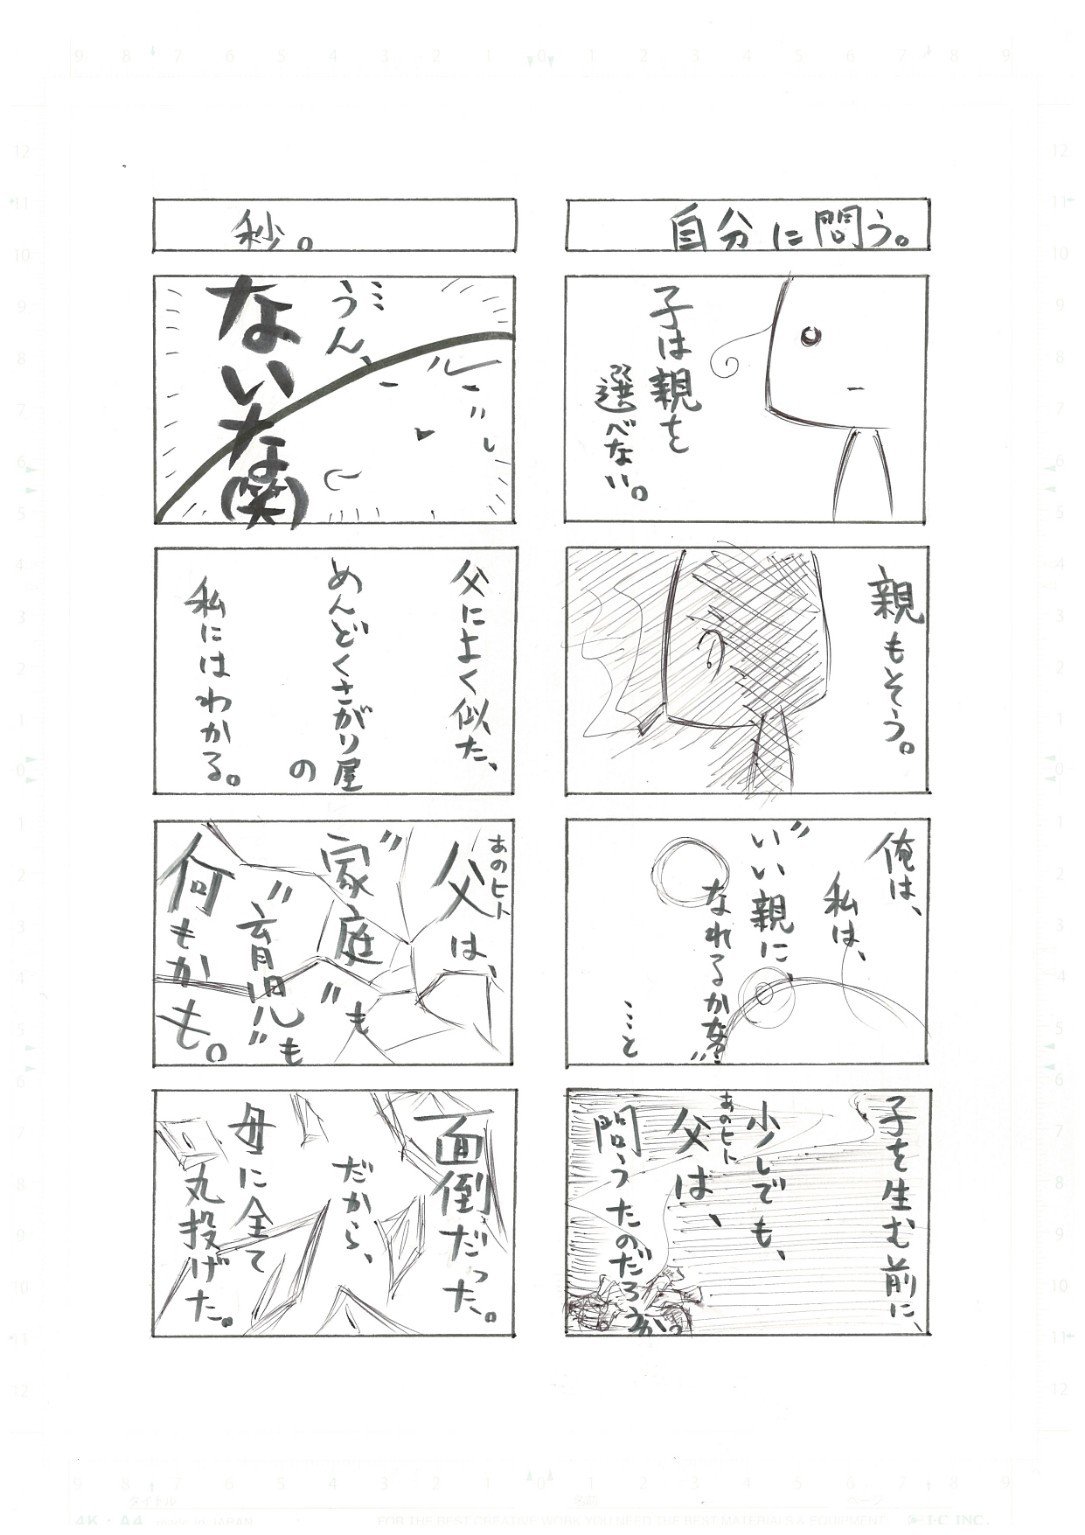 自分に問う。
子は親を
選べない。
親もそう。
俺は、
私は、
〝いい親に、
なれるかな〟
…と
子を生む前に、
少しでも、
あのヒト
父は、
問うたのだろうか
秒。
…うん、
ないな(笑)
父によく似た、
めんどくさがり屋
の
私にはわかる。
あのヒト
父は、
〝家庭〟も
〝育児〟も
何もかも。
面倒だった。
だから、
母に全て
丸投げた。